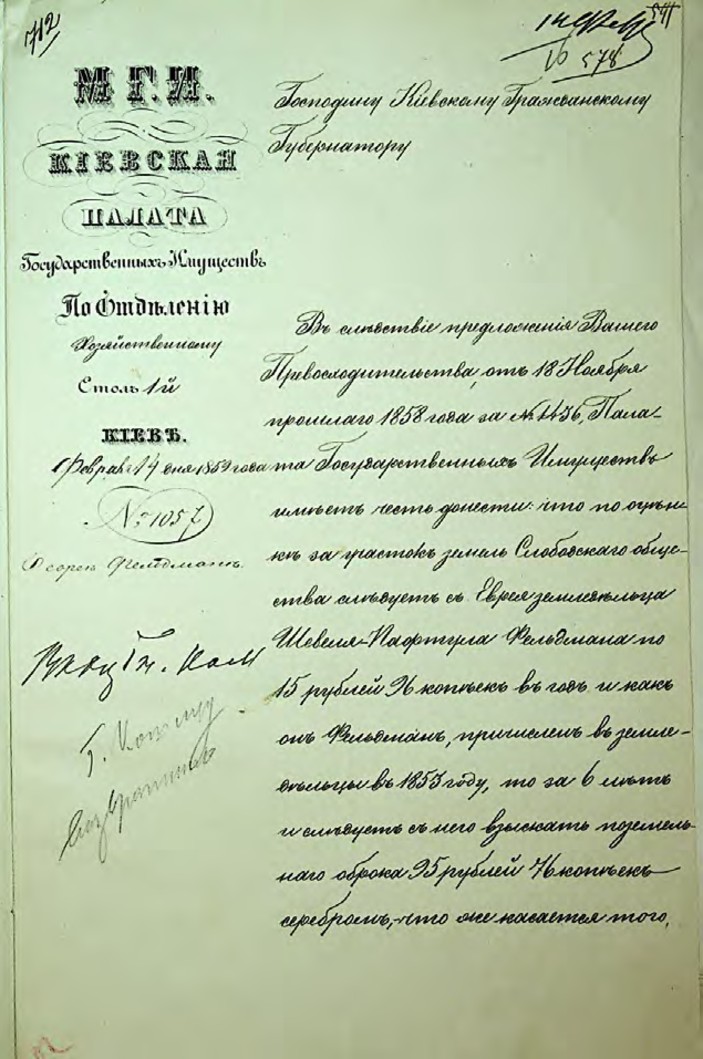 712
541
14 Февр
16 578
М. Г. И.
КІЕВСКАЯ
ПАЛАТА
Государственныхъ Имуществъ
По Отдѣленію
Хозяйственному
Столъ 1й
КІЕВЪ.
Февраля 14 дня 1859 года
№ 1057
О евреѣ Фельдманѣ.
Господину Кіевскому Гражданскому
Губернатору
Въ слѣдствіе предложенія Вашего
Превосходительства, отъ 18 Ноября
прошлаго 1858 года за № 4436, Пала-
та Государственныхъ Имуществъ
имѣетъ честь донести: что по оцѣн-
кѣ за участокъ земель Слободскаго обще-
ства слѣдуетъ съ Еврея земледѣльца
Шевеля-Нафтула Фельдмана по
15 рублей 96 копѣекъ въ годъ и какъ
онъ Фельдманъ, причисленъ въ земле-
дѣльцы въ 1853 году, то за 6 лѣтъ
и слѣдуетъ съ него взыскать поземель-
наго оброка 95 рублей 76 копѣекъ
серебромъ,-что же касается того,